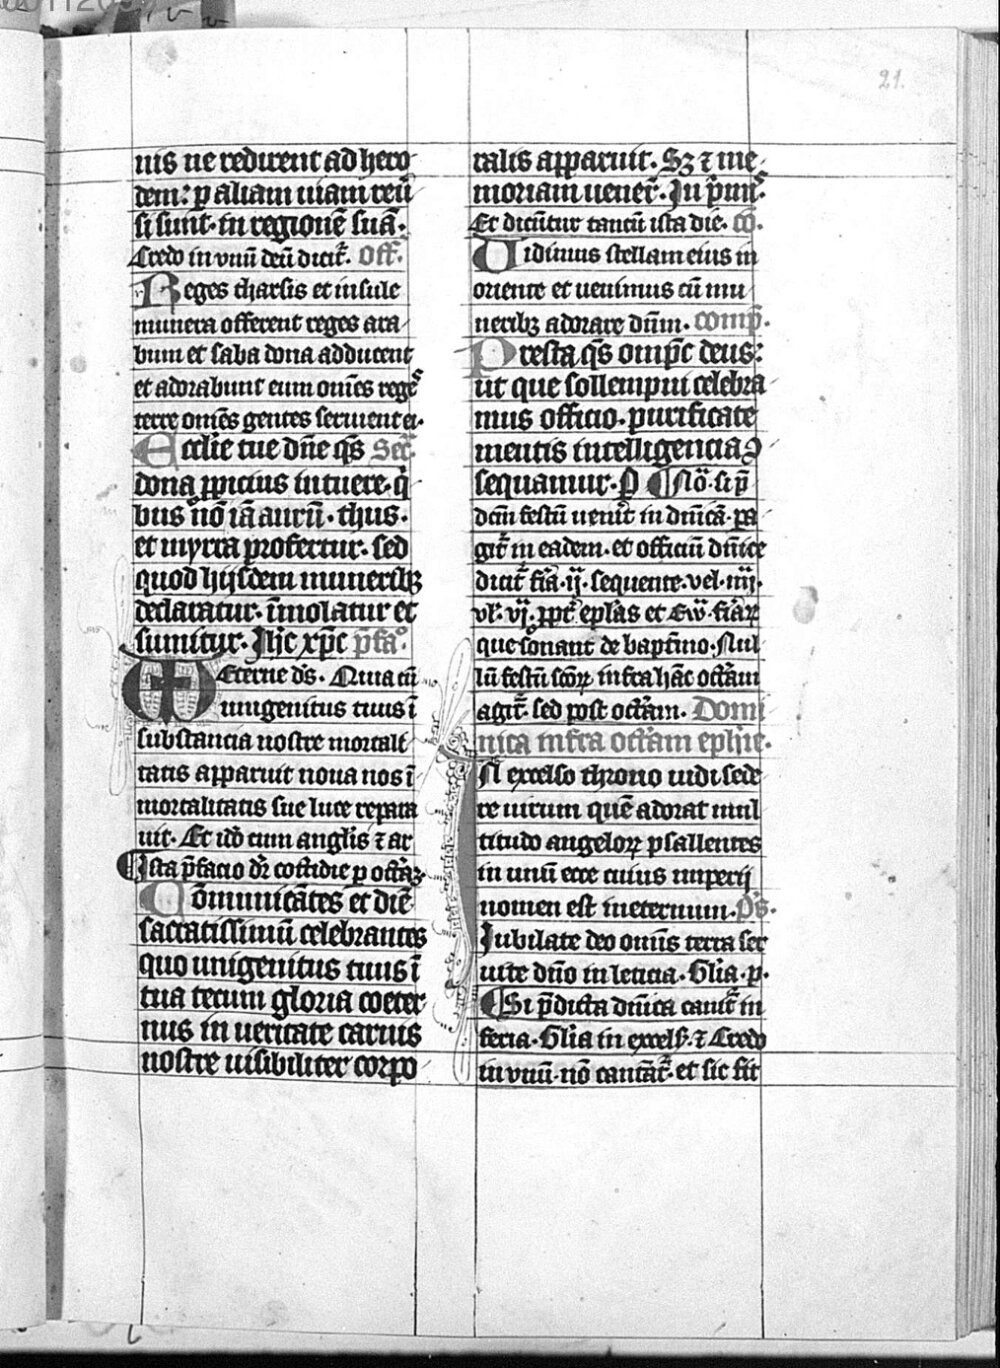 21.
nis ne redirent ad hero
dem: ꝑ aliam uiam reũ
si sunt· in regionē suā·
Credo in vnũ deũ dicit᷑. off᷑.
Reges tharsis et insule
munera offerent reges ara
bum et saba dona adducent
et adorabunt eum om̄es reges
terre om̄es gentes seruient ei·
Ecclie tue dn̄e qs̄ Secr̄.
dona ꝓpicius intuere· qͥ
bus nō iā aurū· thus·
et myrra profertur· sed
quod hijsdem muneribꝫ
declaratur· īmolatur et
sumitur· Jhc xp̄c p̄faᵒ·
Eterne ds̄· Quia cū
unigenitus tuus ī
substancia nostre mortali
tatis apparuit noua nos ī
mortalitatis sue luce repara
uit· Et ido᷑ cum angl̄is ⁊ ar
Ista p̄facio dr̄ cottidie ꝑ octāꝫ
Cōmunicātes et diē
sacratissimū celebrantes
quo unigenitus tuus ī
tua tecum gloria coeter
nus in ueritate carnis
nostre uisibiliter corpo
ralis apparuit· Sꝫ ⁊ me
moriam uener̄· In p̄mis
Et dicūtur tantū ista die· cō·
Uidimus stellam eius in
oriente et uenimus cū mu
neribꝫ adorare dn̄m· comp̄·
Presta qs̄ omp̄c deus:
ut que sollempni celebra
mus officio· purificate
mentis intelligencia ꝯ
sequamur· ꝑ Nō· si p̄
dc̄m festū uen̄it in dn̄icā· ꝑa
git᷑ in eadem· et officiū dn̄ice
dicit᷑ fīa· ij· sequente· vel· iiij·
vl̄· vj· ꝓpt᷑ epl̄as et Ew̄· fīaꝝ
que sonant de baptīmo· Nul
lū festū scōꝝ infra hāc octām
agit᷑· sed post octām· Domi
nica infra octām epħie·
IN excelso throno uidi sede
re uirum quē adorat mul
titudo angeloꝝ psallentes
in unū ecce cuius imperij
nomen est ineternum· p̄s·
Iubilate deo omīs terra ser
uite dn̄o in leticia· Gl̄ia· p·
Si p̄dicta dn̄ica canit᷑ in
feria· Gl̄ia in excels̄· ⁊ Credo
in vnū· nō cantāt᷑· et sic fit